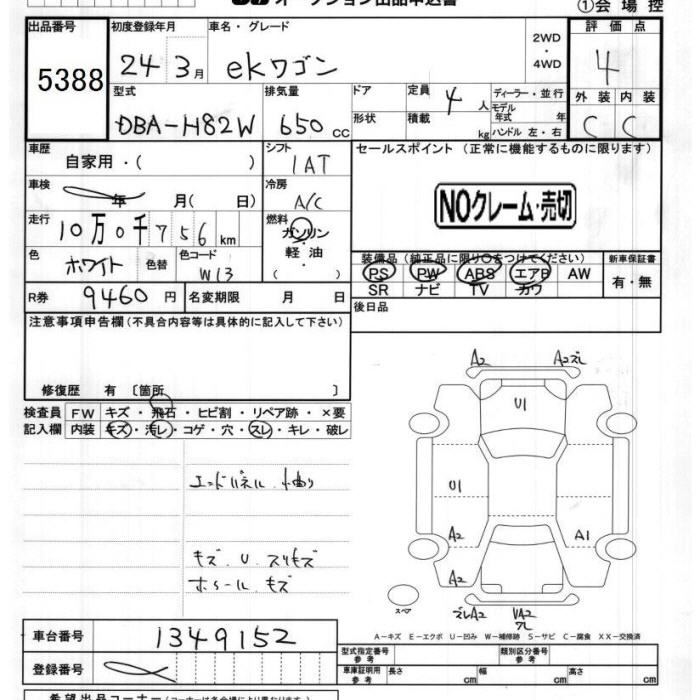 オークション出品申込書
①会場控
出品番号 初度登録年月 車名・グレード 評価点
5388
24 3月 ekワゴン 2WD・4WD 4
型式 排気量 ドア 定員 4人 ディーラー・並行 外装 内装
モデル年式 年
DBA-H82W 650cc 形状 積載 kg ハンドル 左・右 C C
車歴 シフト セールスポイント (正常に機能するものに限ります)
自家用・( ) IAT
車検 冷房
年 月( 日) A/C
NOクレーム・売切
走行 燃料
10万0千756km ガソリン・軽油・( )
色 色替 色コード
ホワイト W13
装備品 (純正品に限り○をつけてください) 新車保証書
PS PW ABS エアB AW 有・無
SR ナビ TV カワ
R券 9460円 名変期限 月 日 後日品
注意事項申告欄(不具合内容等は具体的に記入して下さい)
修復歴 有 〔箇所 〕
検査員 FW キズ・飛石・ヒビ割・リペア跡・×要
記入欄 内装 キズ・汚レ・コゲ・穴・スレ・キレ・破レ
A2 A2ズレ
U1
エンドパネル 小曲り
U1
A2 A1
キズ U スリキズ
ホイール キズ
A2
スペア ズレA2 UA2
ワレ
A－キズ E－エクボ U－凹み W－補修跡 S－サビ C－腐食 XX－交換済
車台番号 1349152
型式指定番号 参考 類別区分番号 参考
登録番号 車庫証明用 参考 長さ cm 幅 cm 高さ cm
希望出品コーナー(コーナーは各会場により異なります)